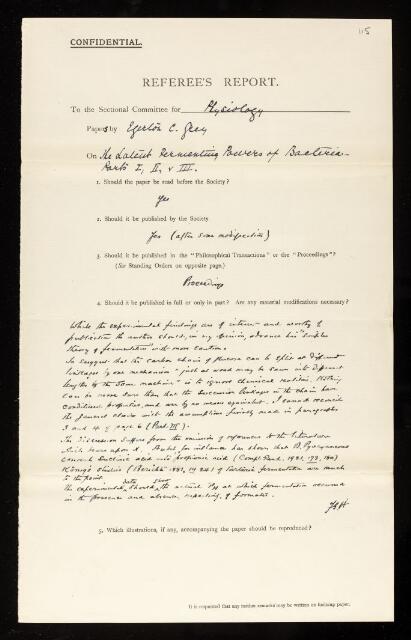 115
CONFIDENTIAL.
REFEREE'S REPORT.
To the Sectional Committee for Physiology
Papers by Egerton C. Grey
On The Latent Fermenting Powers of Bacteria.
Parts I, II, & III.
1. Should the paper be read before the Society?
Yes
2. Should it be published by the Society
Yes (after some modification)
3. Should it be published in the "Philosophical Transactions" or the "Proceedings"?
(See Standing Orders on opposite page.)
Proceedings
4. Should it be published in full or only in part? Are any material modifications necessary?
While the experimental findings are of interest and worthy of
publication the author should, in my opinion, advance his "simplex
theory of fermentation" with more caution.
To suggest that the carbon chain of glucose can be split at different
linkages by one mechanism "just as wood may be sawn into different
lengths by the same machine" is to ignore chemical realities. Nothing
can be more sure than that the successive linkages in the chain have
conditioned properties, and are by no means equivalent. I cannot reconcile
the general claim with the assumptions finally made in paragraphs
3 and 4 of page 6 (Part III).
The discussion suffers from the omission of references to the literature
which bears upon it. for instance has shown that B. Pyocyaneus
converts succinic acid into propionic acid (Compt. Rend. 1921, 173, 180)
König's studies (Berichte 1881, 14 211) of tartaric fermentation are much
to the point.
The experimental data should show the actual PH at which fermentation occurs
in the presence and absence, respectively, of formates.
5. Which illustrations, if any, accompanying the paper should be reproduced?
It is requested that any further remarks may be written on foolscap paper.